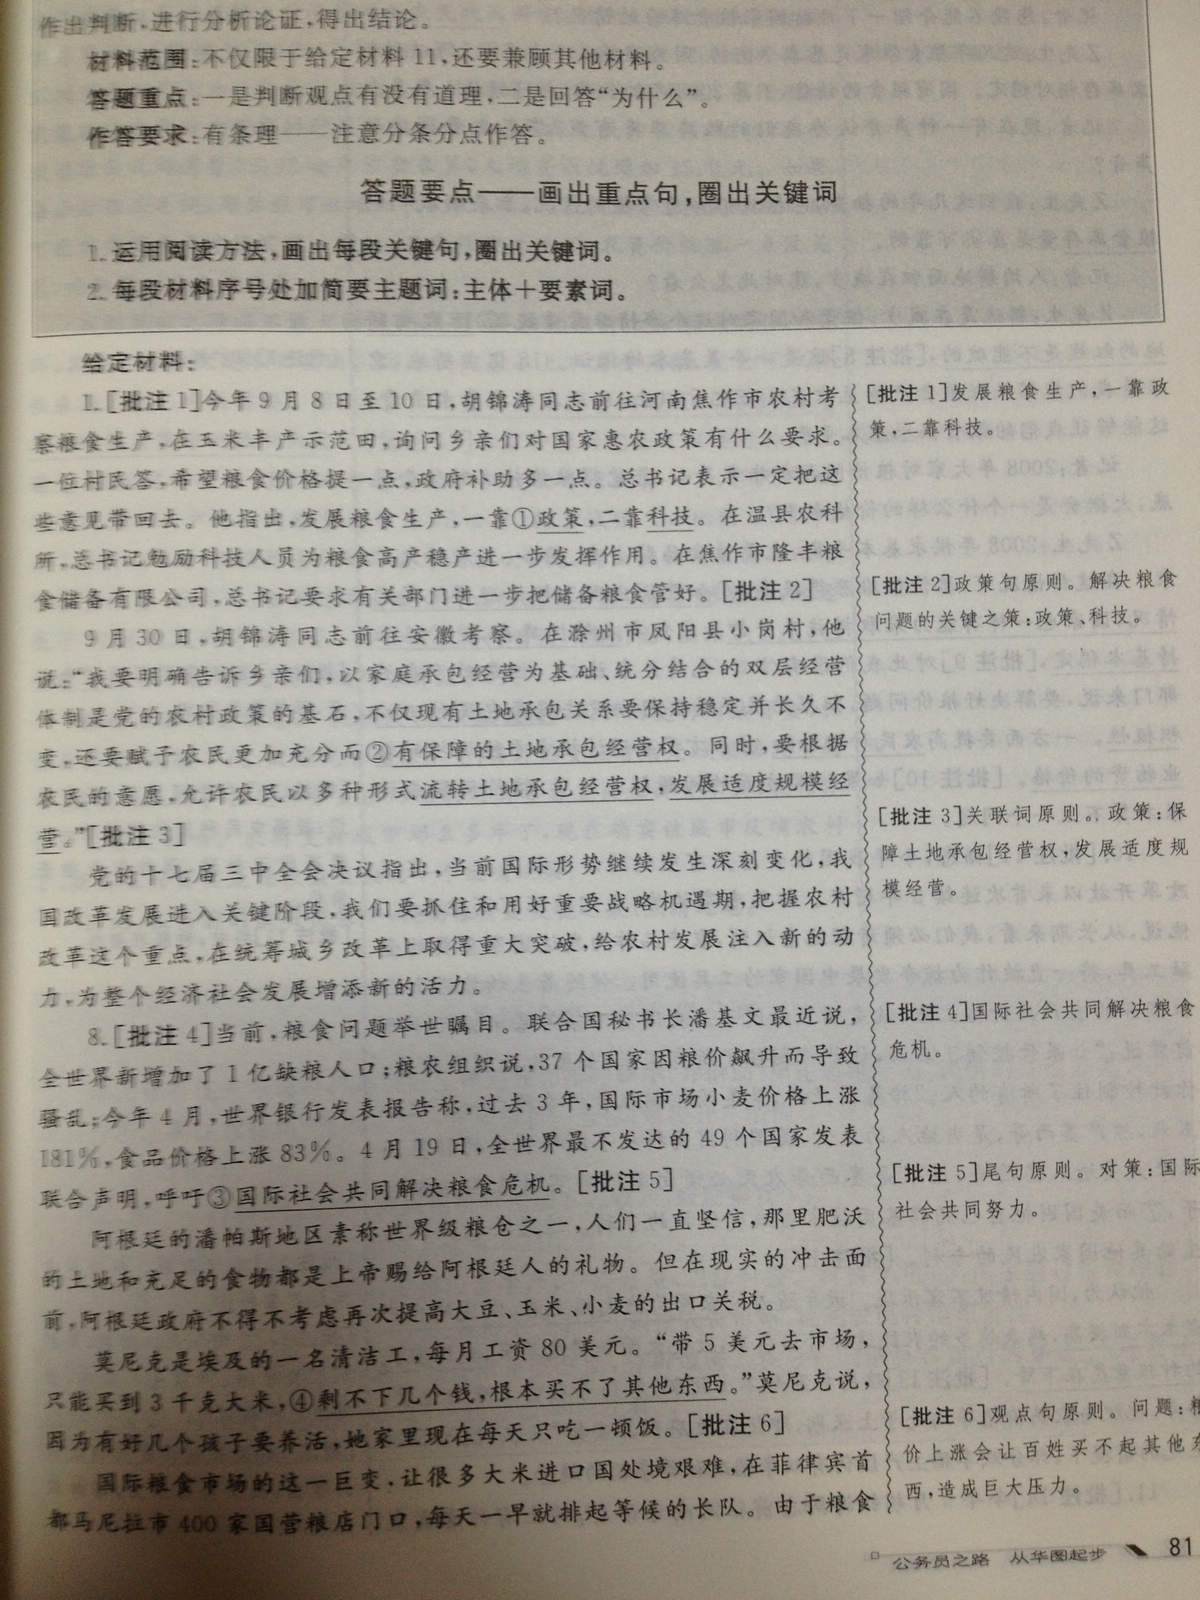 作出判断,进行分析论证,得出结论。
材料范围:不仅限于给定材料11,还要兼顾其他材料。
答题重点:一是判断观点有没有道理,二是回答“为什么”。
作答要求:有条理——注意分条分点作答。
答题要点——画出重点句,圈出关键词
1. 运用阅读方法,画出每段关键句,圈出关键词。
2. 每段材料序号处加简要主题词:主体+要素词。
给定材料:
1. [批注1]今年9月8日至10日,胡锦涛同志前往河南焦作市农村考
察粮食生产,在玉米丰产示范田,询问乡亲们对国家惠农政策有什么要求。
一位村民答,希望粮食价格提一点,政府补助多一点。总书记表示一定把这
些意见带回去。他指出,发展粮食生产,一靠①政策,二靠科技。在温县农科
所,总书记勉励科技人员为粮食高产稳产进一步发挥作用。在焦作市隆丰粮
食储备有限公司,总书记要求有关部门进一步把储备粮食管好。[批注2]
9月30日,胡锦涛同志前往安徽考察。在滁州市凤阳县小岗村,他
说:“我要明确告诉乡亲们,以家庭承包经营为基础、统分结合的双层经营
体制是党的农村政策的基石,不仅现有土地承包关系要保持稳定并长久不
变,还要赋予农民更加充分而②有保障的土地承包经营权。同时,要根据
农民的意愿,允许农民以多种形式流转土地承包经营权,发展适度规模经
营。”[批注3]
党的十七届三中全会决议指出,当前国际形势继续发生深刻变化,我
国改革发展进入关键阶段,我们要抓住和用好重要战略机遇期,把握农村
改革这个重点,在统筹城乡改革上取得重大突破,给农村发展注入新的动
力,为整个经济社会发展增添新的活力。
8. [批注4]当前,粮食问题举世瞩目。联合国秘书长潘基文最近说,
全世界新增加了1亿缺粮人口;粮农组织说,37个国家因粮价飙升而导致
骚乱;今年4月,世界银行发表报告称,过去3年,国际市场小麦价格上涨
181%,食品价格上涨83%。4月19日,全世界最不发达的49个国家发表
联合声明,呼吁③国际社会共同解决粮食危机。[批注5]
阿根廷的潘帕斯地区素称世界级粮仓之一,人们一直坚信,那里肥沃
的土地和充足的食物都是上帝赐给阿根廷人的礼物。但在现实的冲击面
前,阿根廷政府不得不考虑再次提高大豆、玉米、小麦的出口关税。
莫尼克是埃及的一名清洁工,每月工资80美元。“带5美元去市场,
只能买到3千克大米,④剩不下几个钱,根本买不了其他东西。”莫尼克说,
因为有好几个孩子要养活,她家里现在每天只吃一顿饭。[批注6]
国际粮食市场的这一巨变,让很多大米进口国处境艰难,在菲律宾首
都马尼拉市400家国营粮店门口,每天一早就排起等候的长队。由于粮食
[批注1]发展粮食生产,一靠政
策,二靠科技。
[批注2]政策句原则。解决粮食
问题的关键之策:政策、科技。
[批注3]关联词原则。政策:保
障土地承包经营权,发展适度规
模经营。
[批注4]国际社会共同解决粮食
危机。
[批注5]尾句原则。对策:国际
社会共同努力。
[批注6]观点句原则。问题:粮
价上涨会让百姓买不起其他东
西,造成巨大压力。
公务员之路 从华图起步 81